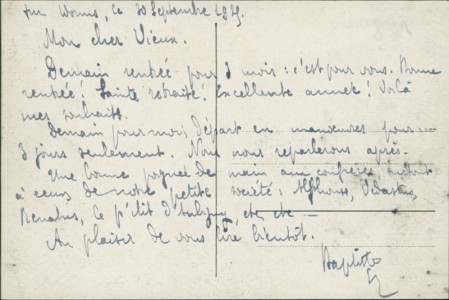 Worms, le 30 Septembre 1929.
Mon cher Vieux.
Demain rentrée pour 3 mois : c'est pour vous. Bonne
rentrée ! Sainte retraite ! Excellente année ! Voilà
mes souhaits.
Demain pour moi départ en manœuvres pour
3 jours seulement. Nous nous reparlerons après.
Une bonne poignée de main aux confrères surtout
à ceux de notre petite société : Alphonse,
le p'tit etc, etc —
Au plaisir de vous lire bientôt.
Baptiste